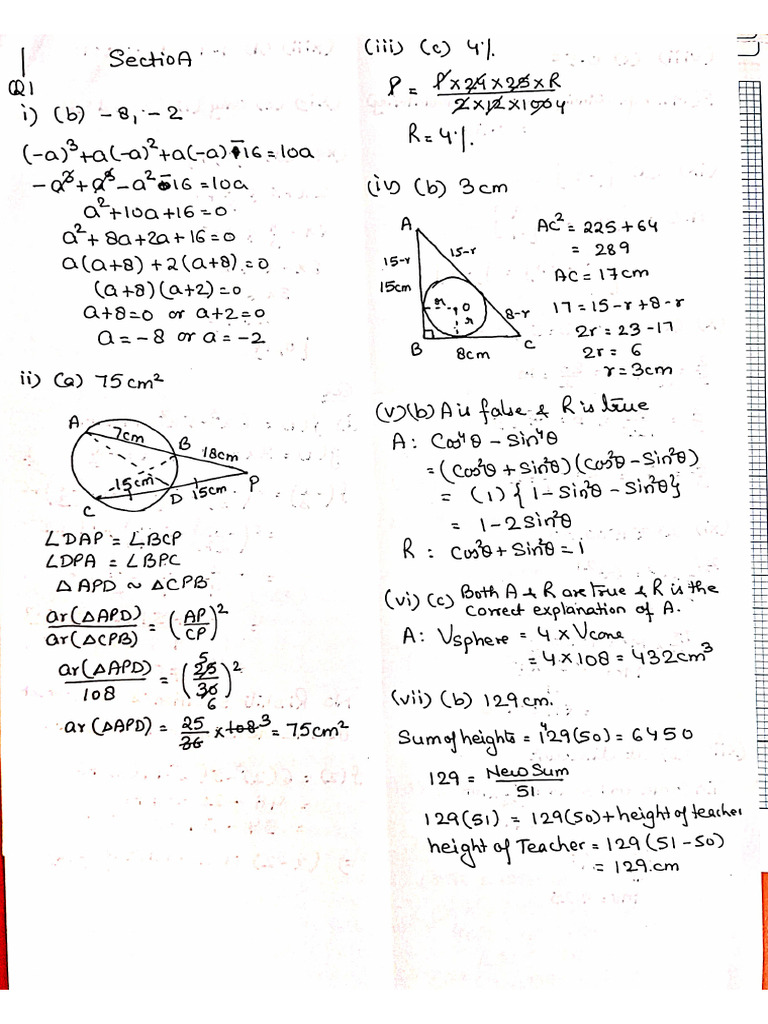 1
Section A
Q1
i) (b) -8, -2
(-a)³+a(-a)²+a(-a)-16=10a
-a³+a³-a²-16=10a
a²+10a+16=0
a²+8a+2a+16=0
a(a+8)+2(a+8)=0
(a+8)(a+2)=0
a+8=0 or a+2=0
a=-8 or a=-2
ii) (a) 75cm²
A
7cm
B
18cm
15cm
D
15cm
P
C
∠DAP = ∠BCP
∠DPA = ∠BPC
△APD ~ △CPB
ar(△APD)/ar(△CPB) = (AP/CP)²
ar(△APD)/108 = (25/30)²
5
6
ar(△APD) = 25/36 × 108 3 = 75cm²
(iii) (c) 4%
P = P×24×25×R / 2×12×100 4
R = 4%
(iv) (b) 3cm
A
15-r
15-r
15cm
r
O
r
8-r
B
8cm
C
AC² = 225+64
= 289
AC = 17cm
17 = 15-r+8-r
2r = 23-17
2r = 6
r = 3cm
(v)(b) A is false & R is true
A: Cos⁴θ - Sin⁴θ
=(Cos²θ+Sin²θ)(Cos²θ-Sin²θ)
= (1) {1-Sin²θ-Sin²θ}
= 1-2Sin²θ
R: Cos²θ+Sin²θ=1
(vi) (c) Both A & R are true & R is the
correct explanation of A.
A: Vsphere = 4×Vcone
=4×108=432cm³
(vii) (b) 129cm.
Sum of heights = 129(50)=6450
129 = New Sum/51
129(51) = 129(50)+height of teacher
height of Teacher = 129(51-50)
= 129.cm